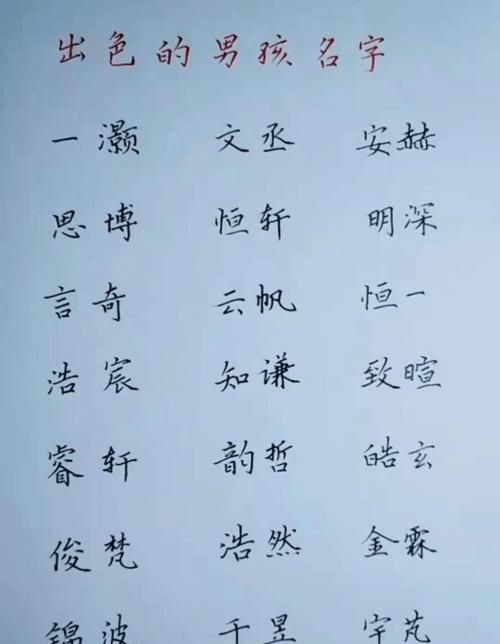 出色的男孩名字
一灏 文丞 安赫
思博 恒轩 明深
言奇 云帆 恒一
浩宸 知谦 致暄
睿轩 韵哲 皓玄
俊梵 浩然 金霖
锦波 千昱 宇芃